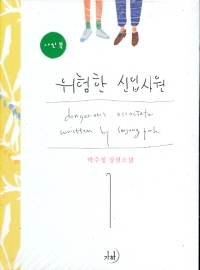 사인북
위험한 신입사원
dangerous associate
written by soojung park
박수정 장편소설
1
가하